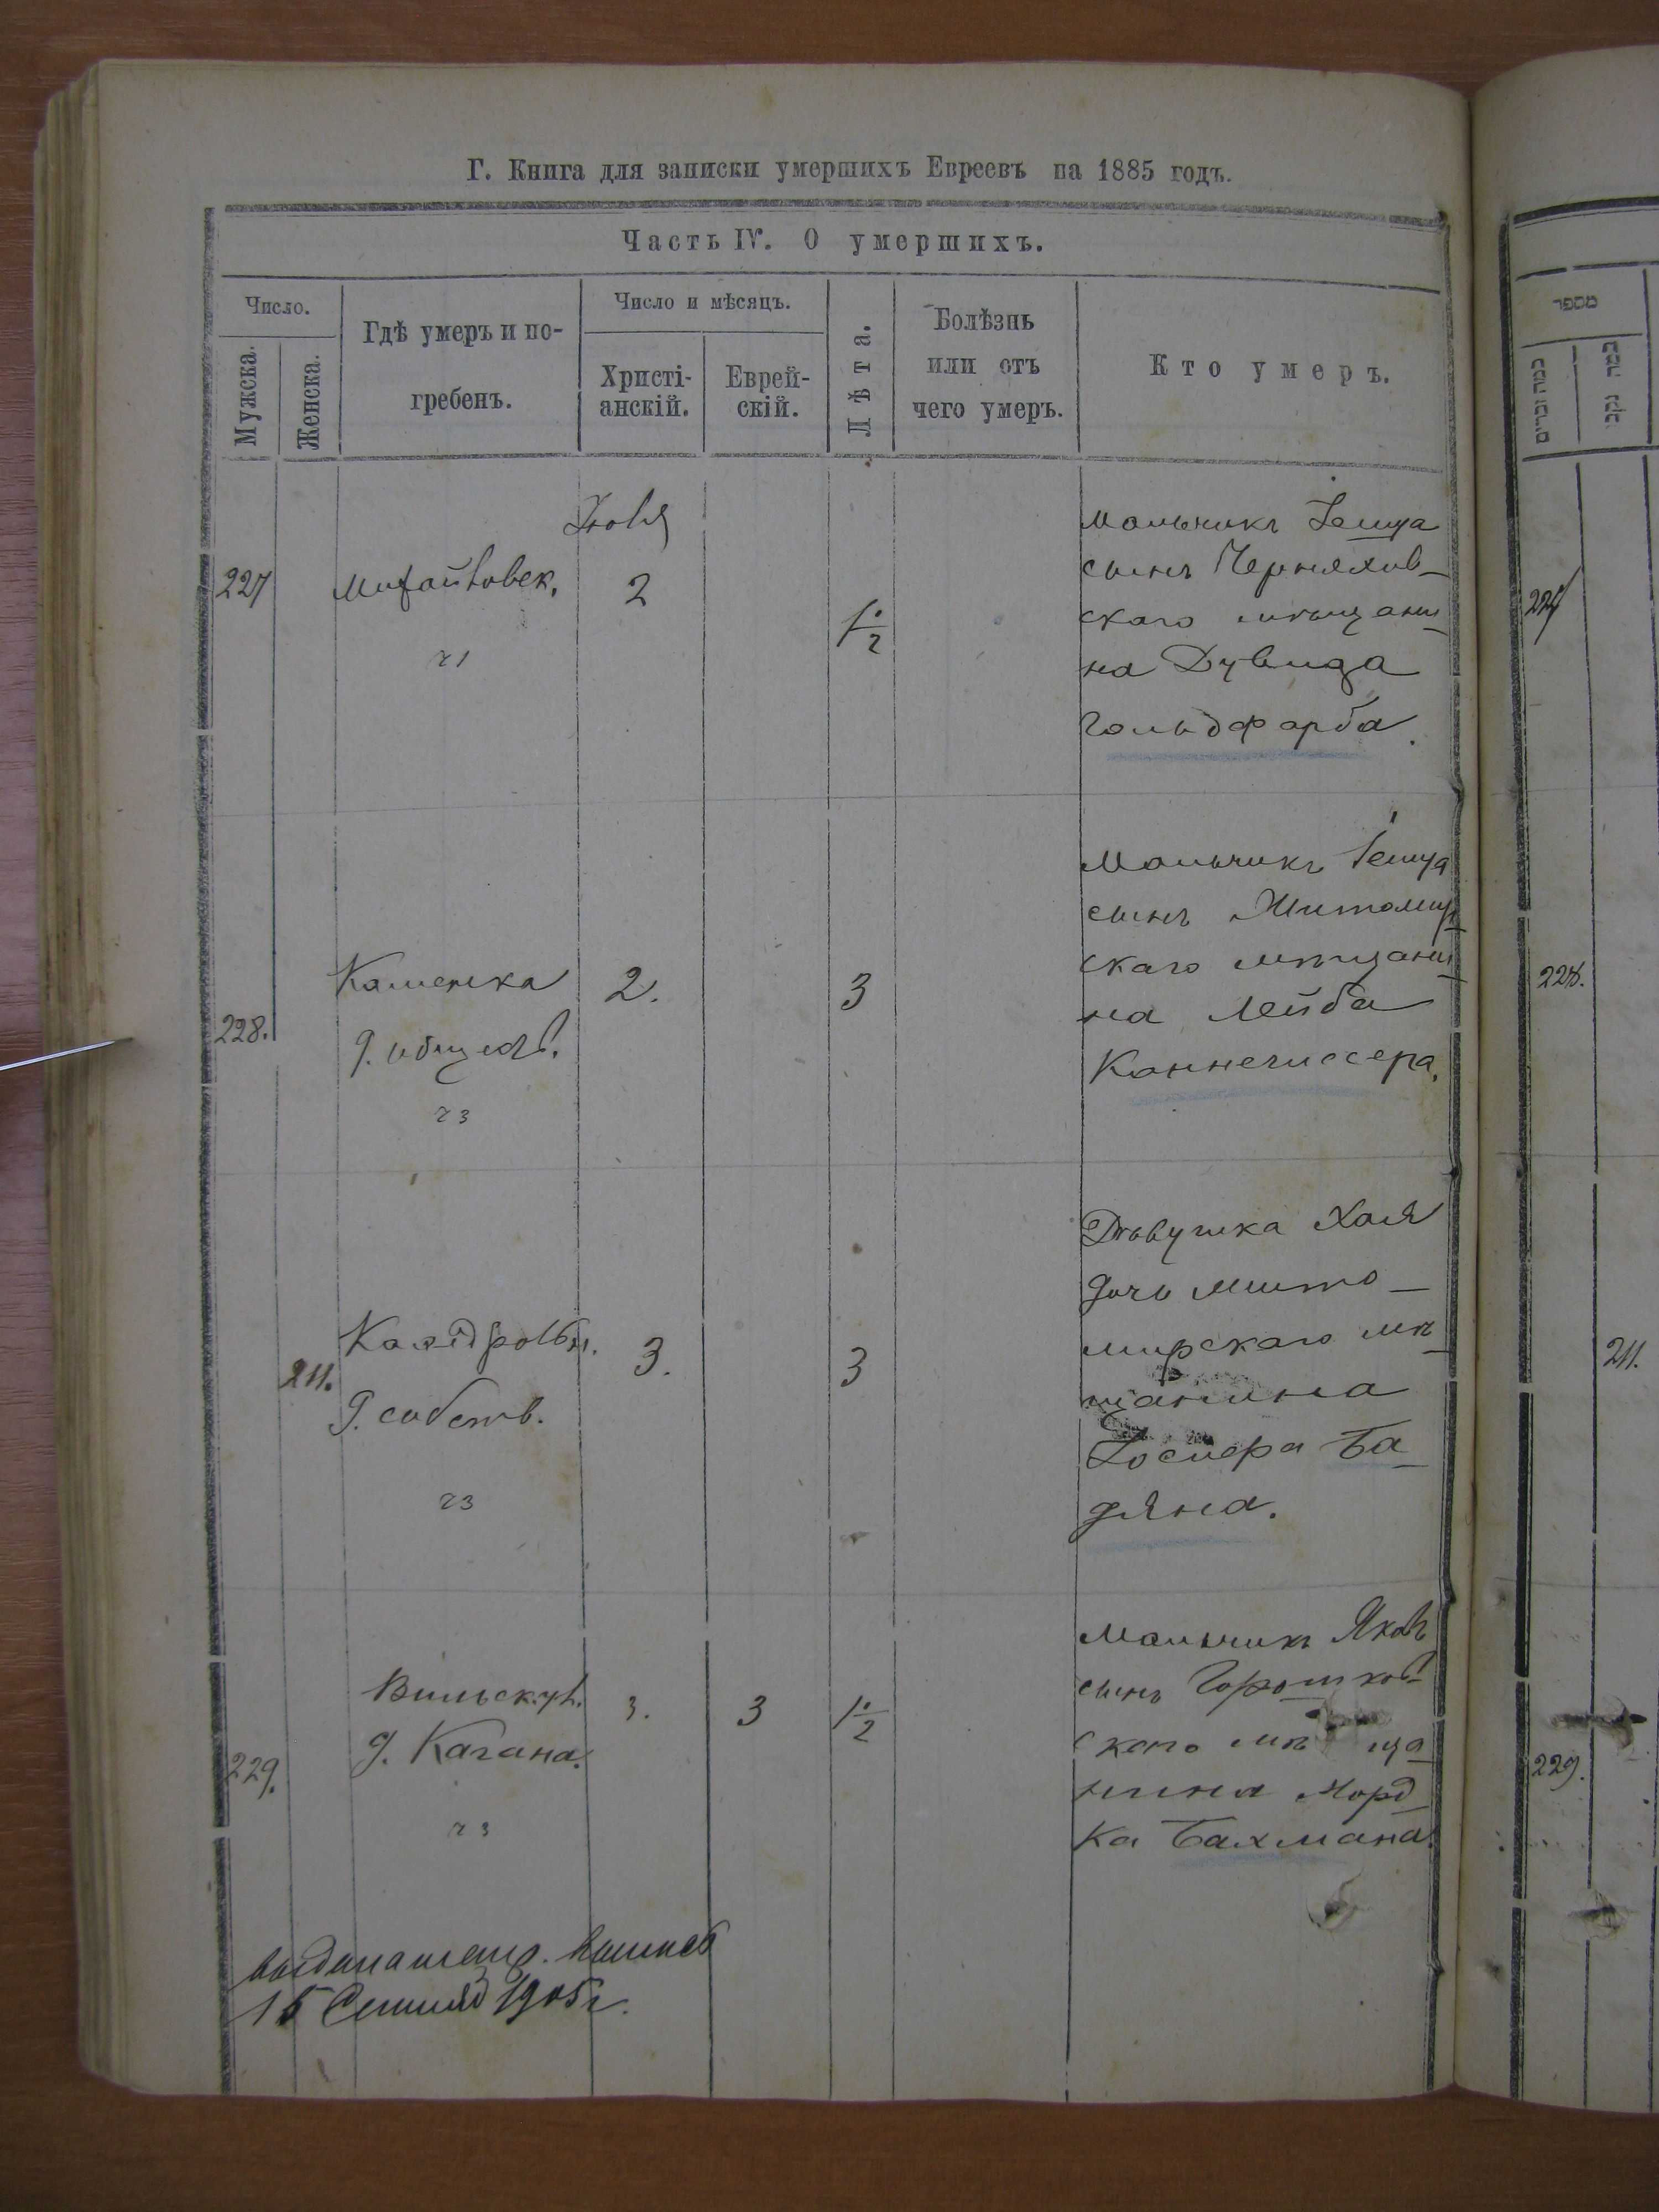 Г. Книга для записки умершихъ Евреевъ на 1885 годъ.
Часть IV. О умершихъ.
Число.
Мужска.
Женска.
Гдѣ умеръ и по-
гребенъ.
Число и мѣсяцъ.
Христі-
анскій.
Еврей-
скій.
Лѣта.
Болѣзнь
или отъ
чего умеръ.
Кто умеръ.
מספר
Іюля
227
Михайловск.
ч1
2
1½
Мальчикъ
сынъ Черняхов-
скаго мѣщани-
на Дувида
Гольдфарба.
227
228.
Каменка
ч3
2.
3
Мальчикъ
сынъ Житомир-
скаго мѣщани-
на Лейба
Каннегиссера.
228.
211.
Д. собств.
ч3
3.
3
Дѣвушка Хая
дочь Жито-
мирскаго мѣ-
щанина
Іосифа Ба-
дяна.
211.
229.
Вильск. ул.
д. Кагана.
ч3
3.
3
1½
Мальчикъ Яковъ
сынъ Горошков-
скаго мѣща-
нина Морд-
ка Бахмана.
229.
15 1905 г.